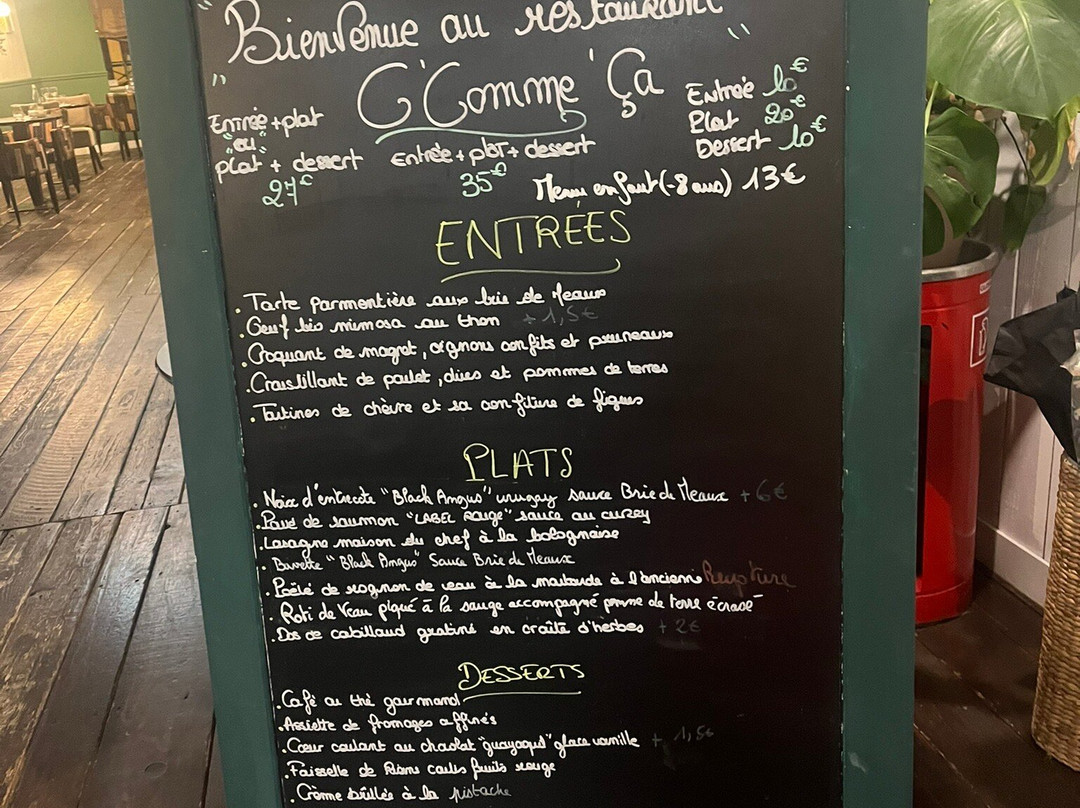 Bienvenue au restaurant
C'Comme Ça
Entrée + plat
"ou"
plat + dessert
27€
Entrée + plat + dessert
35€
Entrée 10€
Plat 20€
Dessert 10€
Menu enfant (-8 ans) 13€
ENTRÉES
. Tarte parmentière aux brie de Meaux
. Oeuf bio mimosa au thon + 1,5€
. Croquant de magret, oignons confits et pruneaux
. Croustillant de poulet, et pommes de terres
. Tartines de chèvre et sa confiture de figues
PLATS
. Noix d'entrecote "Black Angus" urugay sauce Brie de Meaux + 6€
. Pavé de saumon "LABEL Rouge" sauce au curry
. Lasagne maison du chef à la bolognaise
. Bavette "Black Angus" Sauce Brie de Meaux
. Poêlé de rognon de veau à la moutarde à l'ancienne Rupture
. Roti de Veau piqué à la sauge accompagné pomme de terre écrasé
. Dos de cabillaud gratiné en croûte d'herbes + 2€
DESSERTS
. Café ou thé gourmand
. Assiette de fromages affinés
. Cœur coulant au chocolat "guayaquil" glace vanille + 1,5€
. Faisselle de coulis fruits rouge
. Crème brûlée à la pistache